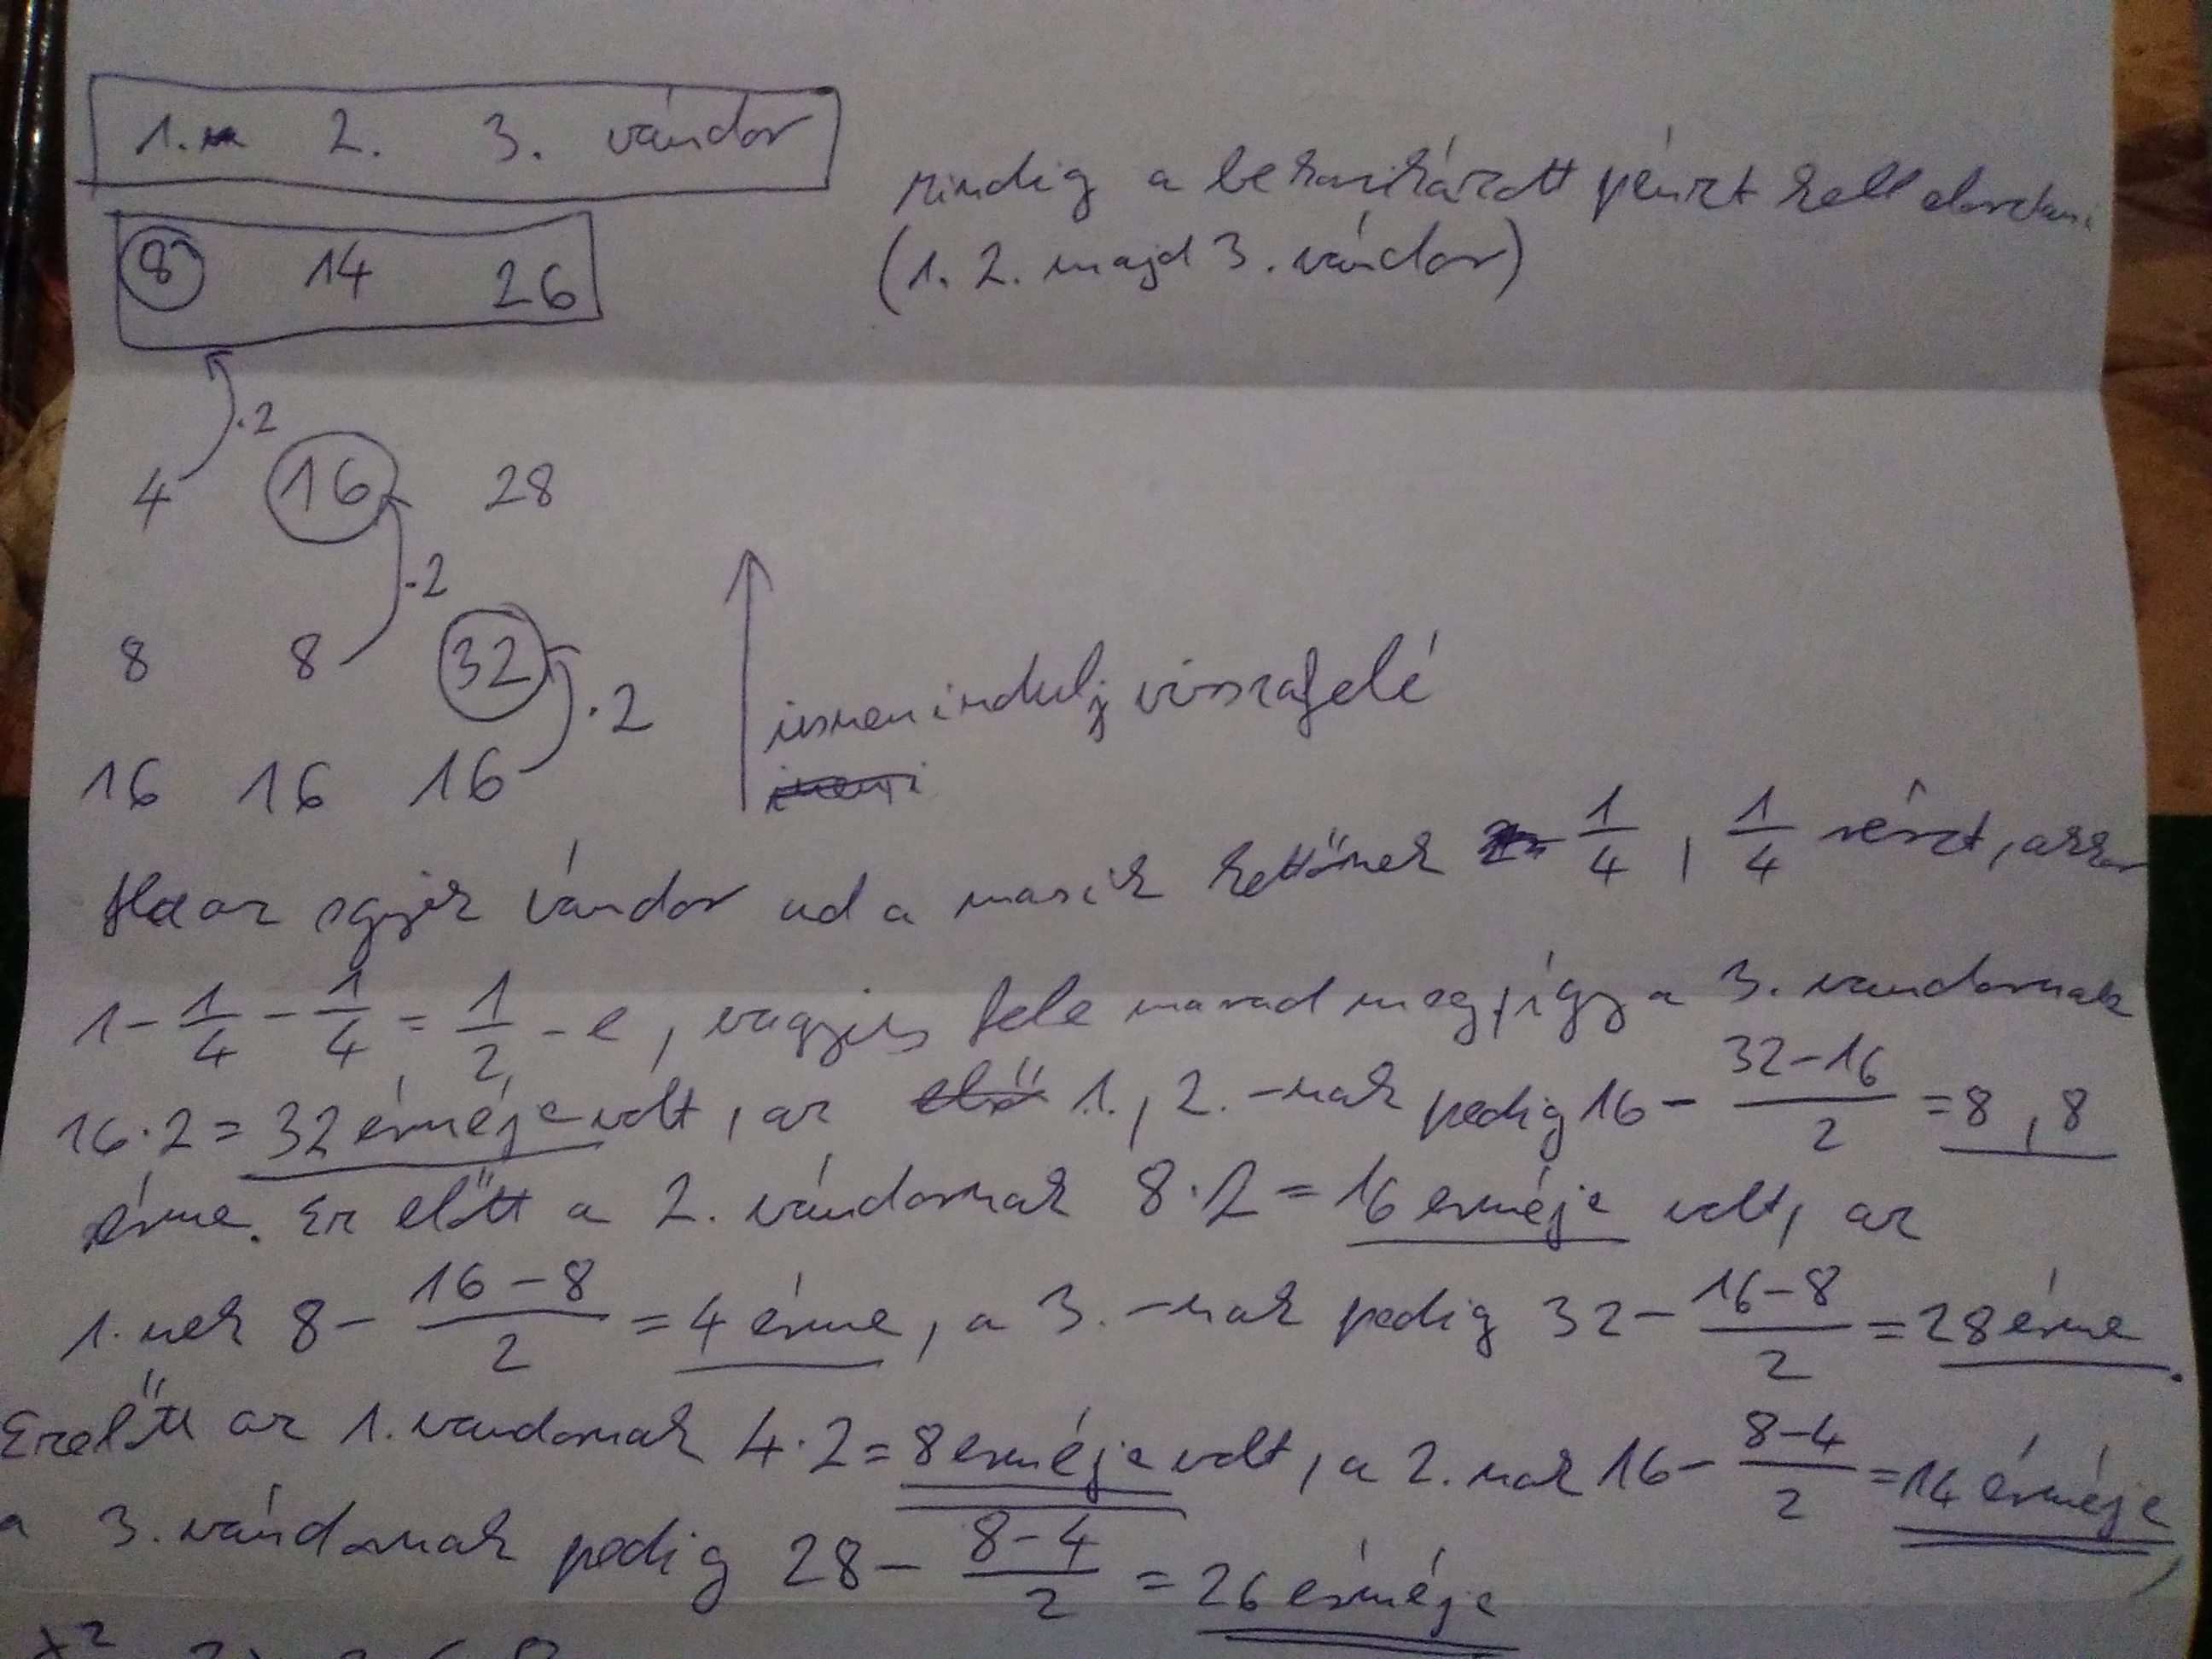 1. 2. 3. vándor
mindig a bekarikázott pénzt kell elosztani
(1. 2. majd 3. vándor)
8 14 26
·2
4 16 28
·2
8 8 32
·2
innen indulj visszafelé
16 16 16
Ha az egyik vándor ad a másik kettőnek 1/4, 1/4 részt, akkor
1 - 1/4 - 1/4 = 1/2 - e, vagyis fele marad meg, így a 3. vandornak
16·2 = 32 érméje volt, az 1., 2. -nak pedig 16 - (32-16)/2 = 8, 8
érme. Ez előtt a 2. vándornak 8·2 = 16 erméje volt, az
1. nek 8 - (16-8)/2 = 4 érme, a 3. -nak pedig 32 - (16-8)/2 = 28 érme.
Ezelőtt az 1. vandornak 4·2 = 8 erméje volt, a 2. nak 16 - (8-4)/2 = 14 érméje,
a 3. vándornak pedig 28 - (8-4)/2 = 26 érméje